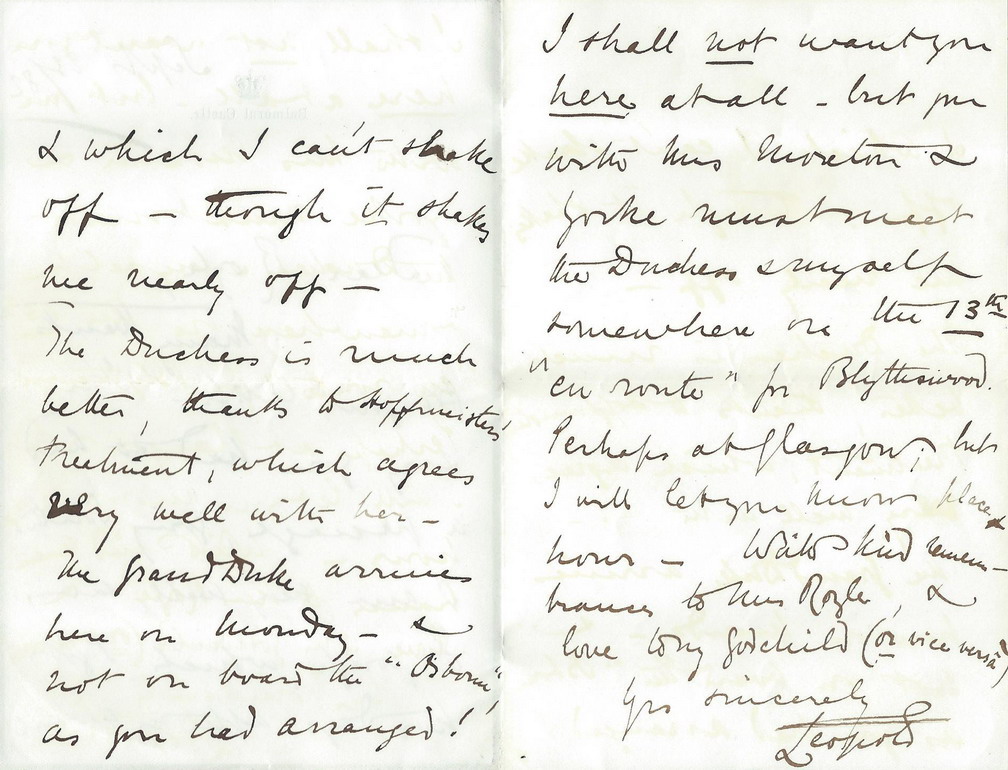 & which I can't shake
off — though it shakes
me nearly off —
The Duchess is much
better, thanks to Hoffmeister's
treatment, which agrees
very well with her —
The Grand Duke arrives
here on Monday — &
not on board the "Osborne",
as you had arranged!
I shall not want you
here at all — but you
with Mrs Moreton &
Yorke must meet
the Duchess & myself
somewhere on the 13th
"en route" for Blythswood.
Perhaps at Glasgow; but
I will let you know place &
hour — With kind remem-
brances to Mrs Royle, &
love to my Godchild (or vice versâ)
Yrs sincerely
Leopold
Balmoral Castle.